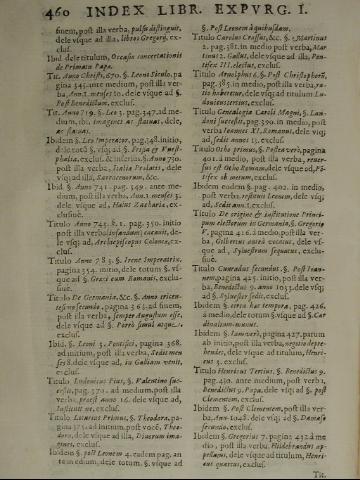 460 INDEX LIBR. EXPVRG. I.
finem, post illa verba, pulsus distinguit,
dele vsque ad illa, libros Gregorij, exclus.
Ibid. dele titulum, Occasio concertationis
de Primatu Papæ.
Tit. Anno Christi, 670. §. Leoni Siculo, pagina
345. ante medium, post illa verba,
Ann. 2. menses 10. dele vsque ad §.
Post Benedictum, exclus.
Tit. Anno 719. §. Leo 3. pag. 347. ad medium,
ibi, imagines ac statuas, dele,
ac statuas.
Ibidem §. Leo Imperator, pag. 348. initio,
Titulo Anno 745. §. 1. pag. 350. initio
Titulo Anno 783. §. Irene Imperatrix,
pagina 354. initio, dele totum §. vsque
ad §. Græci cum Romanis, exclusiuè.
Titulo De Germania, &c. §. Anno trecentesimo
secundo, pagina 363. ad finem,
post illa verba, semper Augustum esse,
dele vsque ad §. Porrò simul atque,
exclus.
Ibid. §. Leoni 5. Pontifici, pagina 368.
ad initium, post illa verba, Sedit menses
8. dele vsque ad, in Galliam venit,
exclus.
Titulo Ludouicus Pius, §. Valentino successit,
pag. 370. ad medium, post illa
verba, præfuit anno 16. dele vsque ad,
Instituit ut, exclus.
Titulo Lotarius Primus, §. Theodora, pagina
373. ad initium, post vocē, Theodora,
dele vsque ad illa, Diuorum imagines,
exclus.
Ibidem §. post Leonem 4. eadem pag. ante
medium, dele totum, §. vsque ad
§. Post Leonem à quibusdam.
Titulo Carolus Crassus, &c. §. Martinus
2. pag. 381. in medio post verba, Martinus
2. Gallus, dele vsque ad illa, Pontifex
III. electus, exclus.
Titulo Arnolphus 4. §. Post Christophorū,
pag. 385. in medio, post illa verba, ratio
haberetur, dele vsq; ad titulum Ludouicus
tertius, exclus.
Titulo Genealogia Caroli Magni, §. Landoni
successit, pag. 390. in medio, post
verba Ioannes XI. Romanus, dele vsq;
ad, sedit annos 13. exclus.
Titulo Otho primus, §. Posteà verò, pagina
401. à medio, post illa verba, reuersus
est Otho Romam, dele vsque ad, Pontifex
ob metum, exclus.
Ibidem eadem §. pag. 402. in medio,
post verba, restituit Leonem, dele vsq;
ad, sedit verò, exclus.
Titulo De origine & institutione Principum
electorum in Germania, §. Gregorio
V. pagina 416. à medio, post illa verba,
Gilbertus aureà vocatus, dele vsque
ad, Syluestrum sequutus, exclusiuè.
Titulo Conradus secundus. §. Post Ioannem,
pagina 425. initio, post illa verba,
Benedictus 9. anno 1033. dele vsq;
ad §. Syluester sedit, exclus.
Ibidem §. circa hæc tempora, pag. 426.
à medio, dele totum §. vsque ad §. Cardinalium
munus.
Ibidem §. Ianuarij, pagina 427. parum
ab initio, post illa verba, negotio deprehendes,
dele vsque ad titulum, Henricus
3. exclus.
Titulo Henricus Tertius. §. Benedictus 9.
pag. 430. ante medium, post verba,
Benedictus 9. Papa, dele vsq; ad §. post
Clementem, exclus.
Ibidem §. Post Clementem, post illa verba,
Ann. 1048. dele vsq; ad §. Damaso
secundo, exclus.
Ibidem §. Gregorius 7. pagina 432 à medio,
post illa verba, Hildebrandus appellatus,
dele vsque ad titulum, Henricus
quartus, exclus.
Tit.